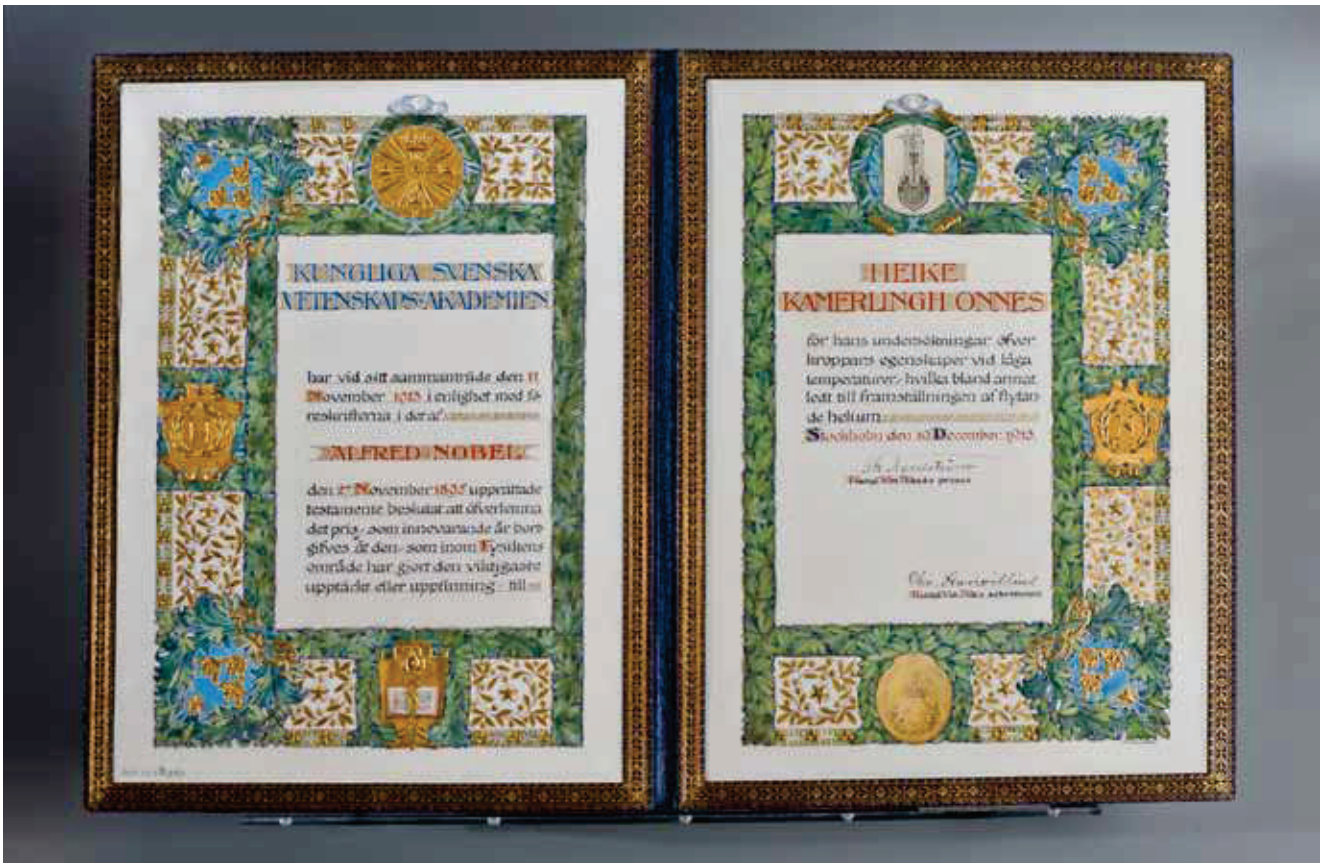 KUNGLIGA SVENSKA
VETENSKAPS-AKADEMIEN
har vid sitt sammanträde den 11
November 1913 i enlighet med fö
reskrifterna i det af
ALFRED NOBEL
den 27 November 1895 upprättade
testamente beslutat att öfverlemna
det pris, som innevarande år bort
gifves åt den, som inom Fysikens
område har gjort den viktigaste
upptäckt eller uppfinning, till
HEIKE
KAMERLINGH ONNES
för hans undersökningar öfver
kroppars egenskaper vid låga
temperaturer, hvilka bland annat
ledt till framställningen af flytan
de helium
Stockholm den 10 December 1913